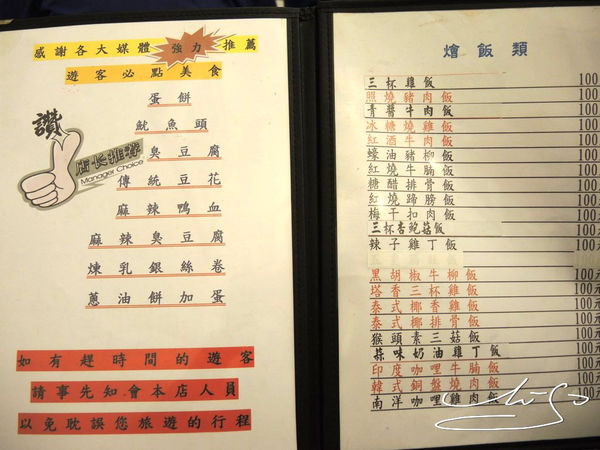 感謝各大媒體 強力 推薦
遊客必點美食
蛋餅
魷魚頭
臭豆腐
傳統豆花
麻辣鴨血
麻辣臭豆腐
煉乳銀絲卷
蔥油餅加蛋
讚
店長推薦
Manager Choice
如有趕時間的遊客
請事先知會本店人員
以免耽誤您旅遊的行程
燴飯類
三杯雞飯 100
照燒豬肉飯 100
青醬牛肉飯 100
冰糖燒雞飯 100
紅酒牛肉飯 100
蠔油豬柳飯 100
紅燒牛腩飯 100
糖醋排骨飯 100
紅燒蹄膀飯 100
梅干扣肉飯 100
三杯杏鮑菇飯 100
辣子雞丁飯 100元
黑胡椒牛柳飯 100元
塔香三杯雞飯 100元
泰式椰香雞飯 100元
泰式椰排骨飯 100元
猴頭素三菇飯 100元
蒜味奶油雞丁飯 100元
印度咖哩牛腩飯 100元
韓式銅盤燒肉飯 100元
南洋咖哩雞肉飯 100元